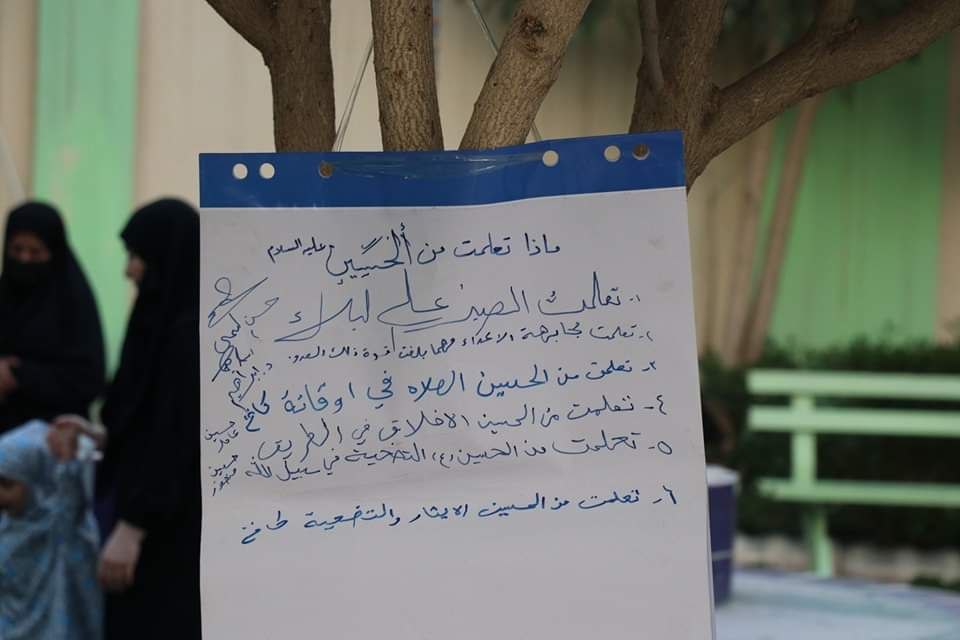 ماذا تعلمت من ألحسين عليه السلام
١- تعلمت الصبر على لبلاء
٢- تعلمت مجابهة الاعداء مهما بلغت قوة ذلك العدو.
٣- تعلمت من الحسين الصلاه في اوقاتة
٤- تعلمت من الحسين الاخلاق في الطريق
٥- تعلمت من الحسين (ع) التضحية في سبيل الله
٦- تعلمت من الحسين الايثار والتضحية